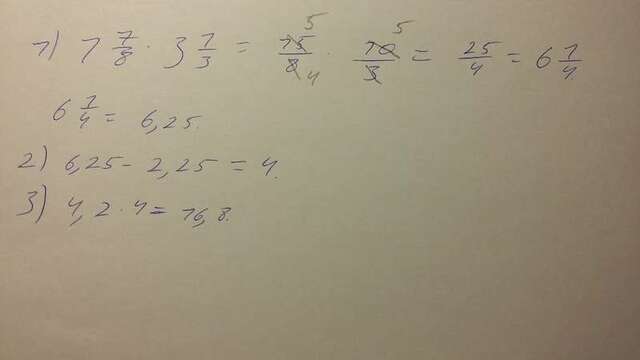 1) 1 7/8 · 3 1/3 = 15/8 · 10/3 = 25/4 = 6 1/4
6 1/4 = 6,25.
2) 6,25 - 2,25 = 4.
3) 4,2 · 4 = 16,8.